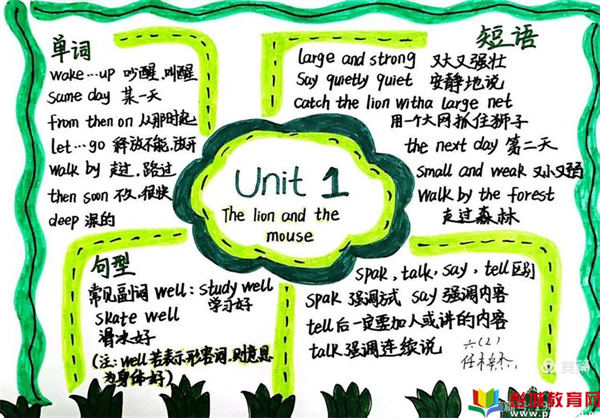 单词
wake…up 吵醒,叫醒
same day 某一天
from then on 从那时起
let…go 释放不能,放开
walk by 走过,路过
then soon 不久,很快
deep 深的
短语
large and strong 又大又强壮
Say quietly quiet 安静地说
catch the lion witha large net
用一个大网抓住狮子
the next day 第二天
small and weak 又小又弱
walk by the forest
走过森林
Unit 1
The lion and the
mouse
句型
常见副词 well: study well
学习好
skate well
滑冰好
(注: well 若表示形容词,则意思
为身体好)
spak, talk, say, tell区别
spak 强调 say 强调内容
tell后一定要加人或讲的内容
talk 强调连续说
六(2)
美篇
教育网